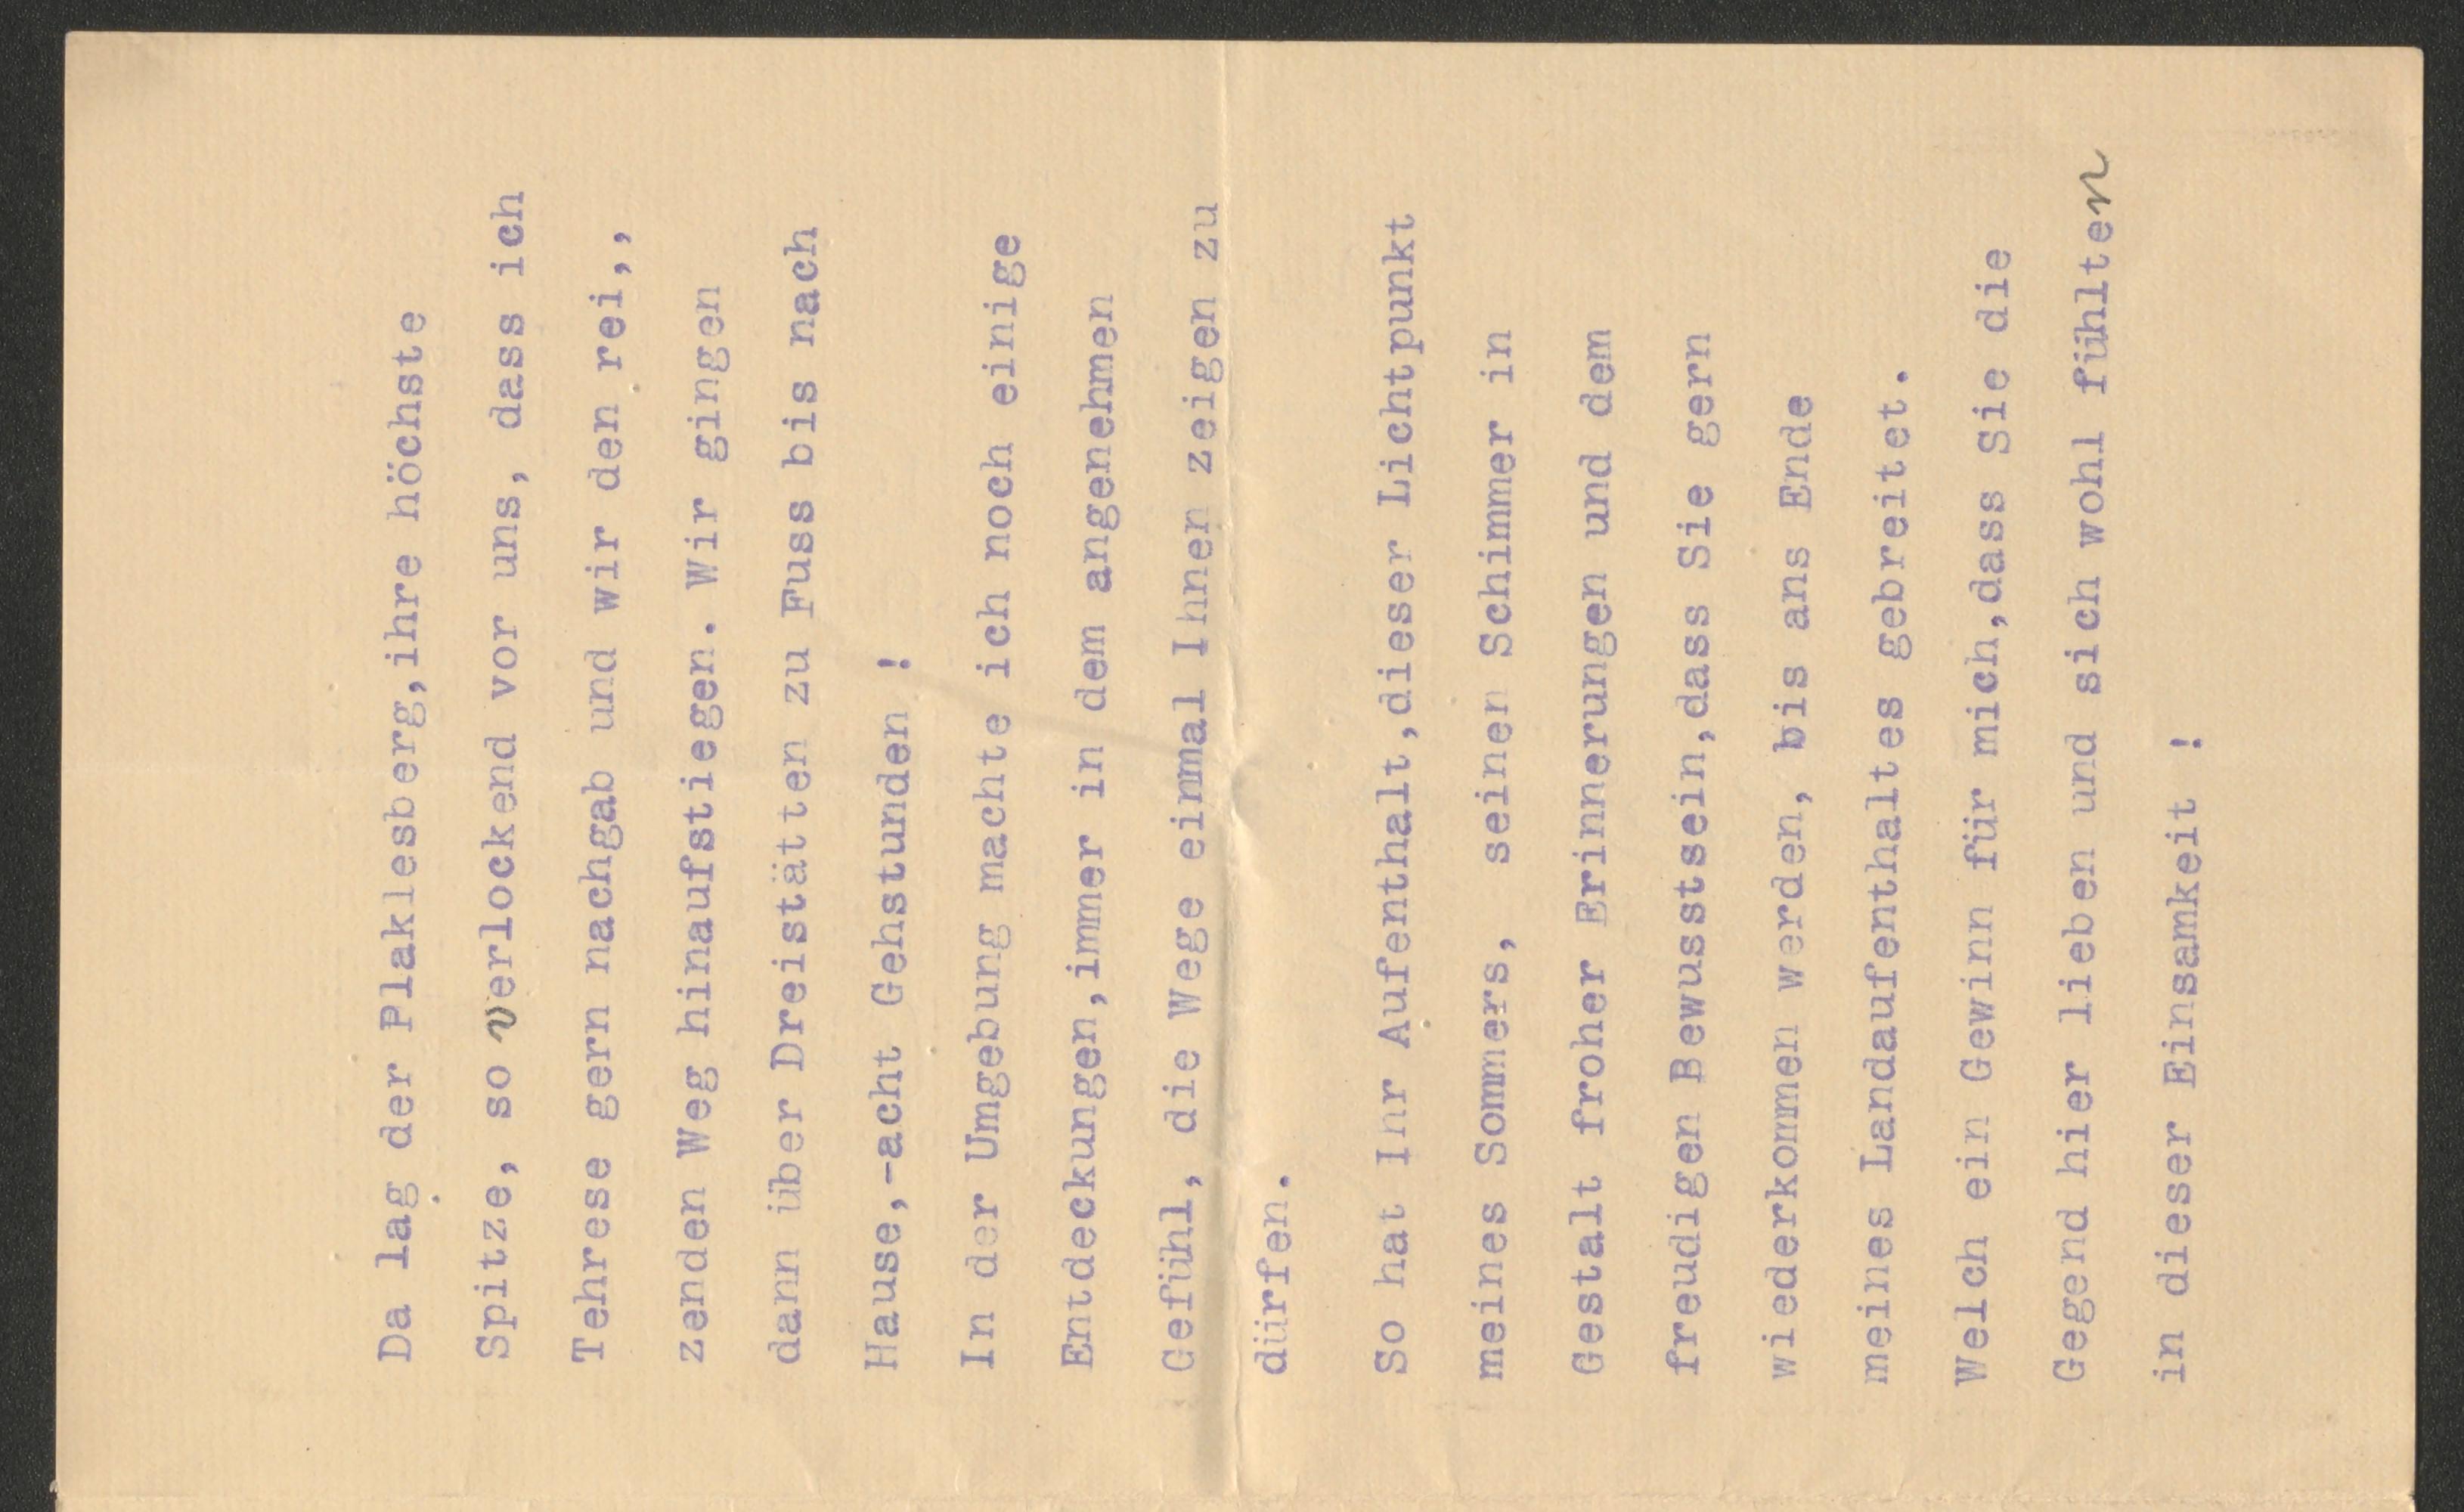 Da lag der Plaklesberg,ihre höchste
Spitze, so verlockend vor uns, dass ich
Tehrese gern nachgab und wir den rei,,
zenden Weg hinaufstiegen. Wir gingen
dann über Dreistätten zu Fuss bis nach
Hause,-acht Gehstunden !
In der Umgebung machte ich noch einige
Entdeckungen,immer in dem angenehmen
Gefühl, die Wege einmal Ihnen zeigen zu
dürfen.
So hat Ihr Aufenthalt,dieser Lichtpunkt
meines Sommers, seinen Schimmer in
Gestalt froher Erinnerungen und dem
freudigen Bewusstsein,dass Sie gern
wiederkommen werden, bis ans Ende
meines Landaufenthaltes gebreitet.
Welch ein Gewinn für mich,dass Sie die
Gegend hier lieben und sich wohl fühlten
in dieser Einsamkeit !